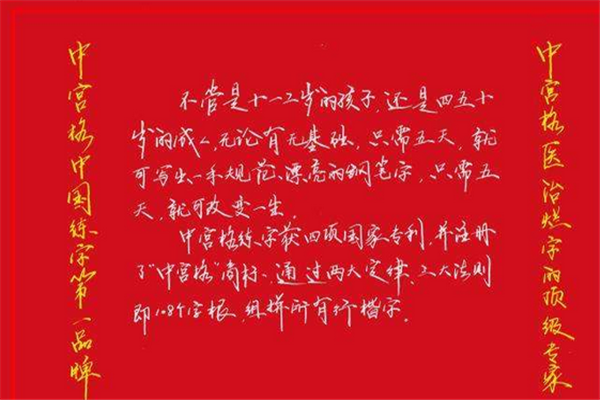 中宫格中国练字第一品牌
不管是十一二岁的孩子,还是四五十
岁的成人,无论有无基础,只需五天,就
可写出一手规范、漂亮的钢笔字,只需五
天,就可改变一生。
中宫格练字获四项国家专利,并注册
了"中宫格"商标、通过两大定律、二大法则
即108个字根,组拼所有行楷字。
中宫格医治烂字的顶级专家